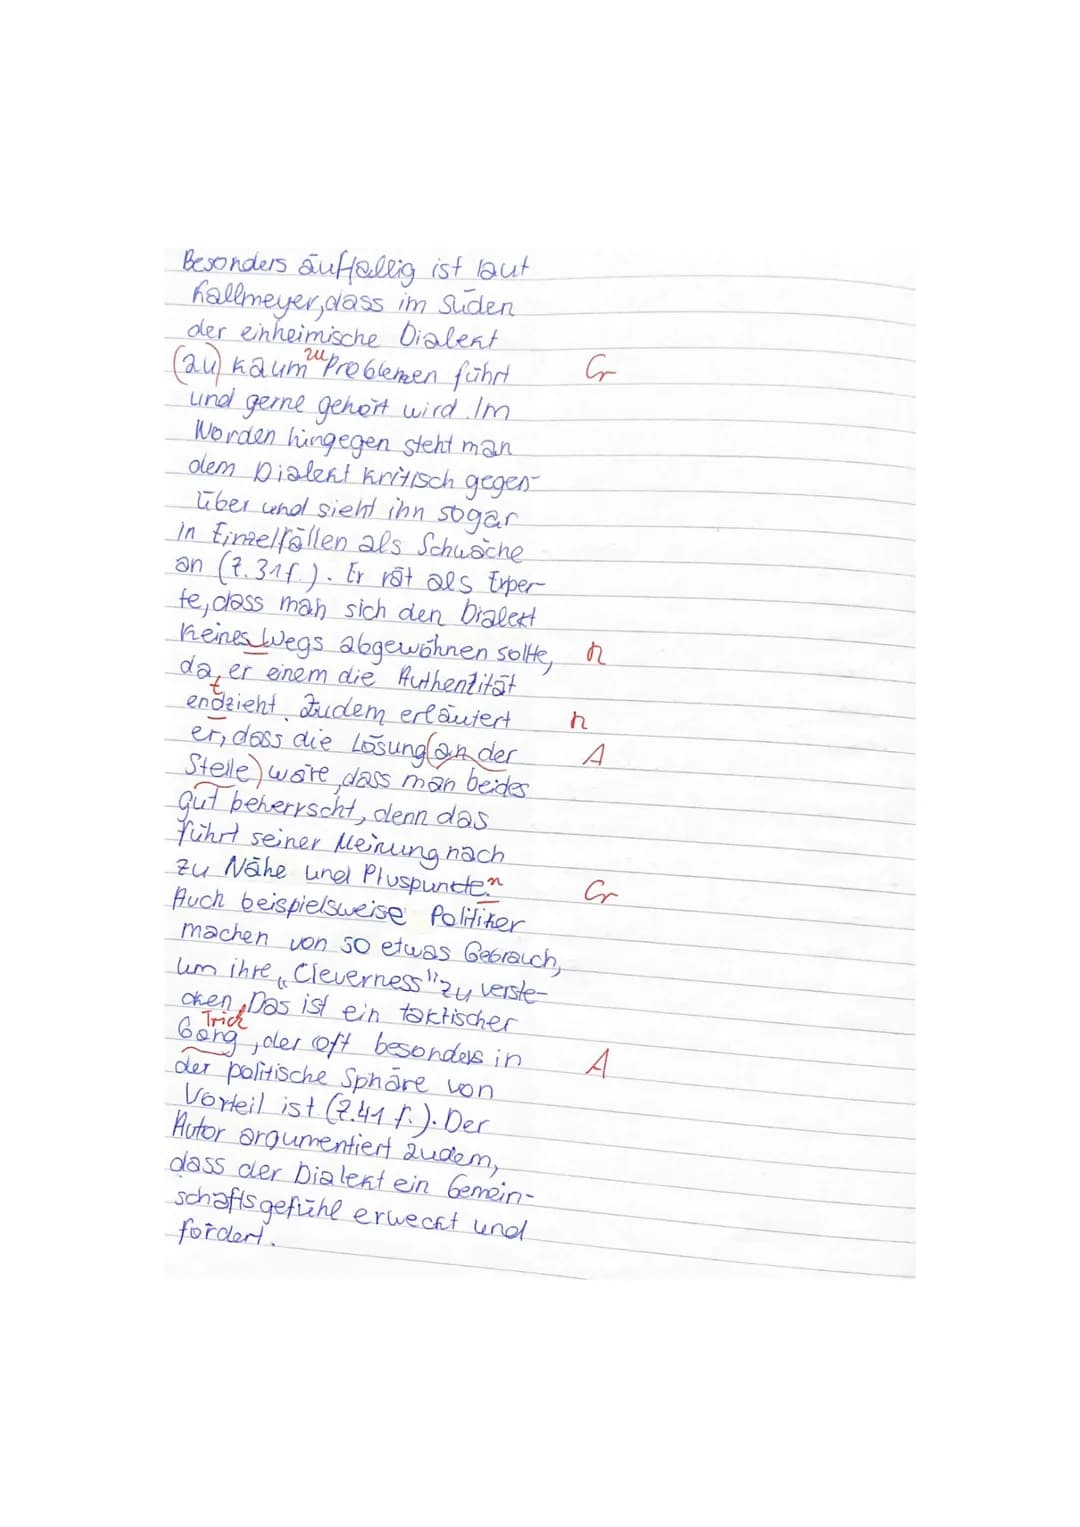 Besonders auffällig ist laut
Kallmeyer, dass im Süden
der einheimische Dialekt
(zu) kaum zu Problemen führt Gr
und gerne gehört wird. Im
Norden hingegen steht man
dem Dialekt kritisch gegen-
über und sieht ihn sogar
in Einzelfällen als Schwäche
an (Z.31f.). Er rät als Exper-
te, dass man sich den Dialekt
keines Wegs abgewöhnen sollte, R
da, er einem die Authenzität
t
endzieht. Zudem erläutert R
er, dass die Lösung (an der A
Stelle) wäre, dass man beides
gut beherrscht, denn das
führt seiner Meinung nach
zu Nähe und Pluspunkte.n Gr
Auch beispielsweise Politiker
machen von so etwas Gebrauch,
um ihre „Cleverness" zu verste-
cken. Das ist ein taktischer
Trick
Gang, der oft besonders in A
der politische Sphäre von
Vorteil ist (Z.41 f.). Der
Autor argumentiert zudem,
dass der Dialekt ein Gemein-
schaftsgefühl erweckt und
fördert.